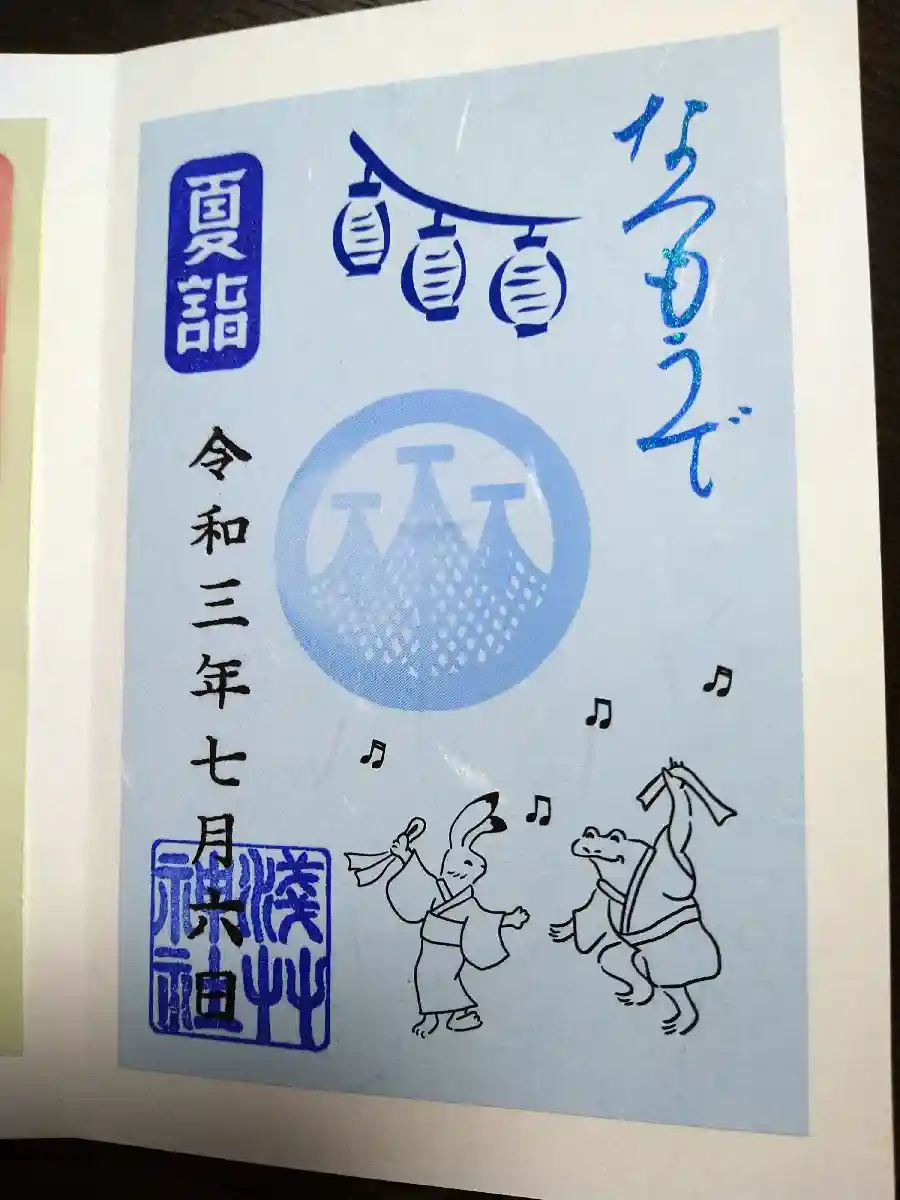 なつもうで
夏詣
令和三年七月六日
浅草神社